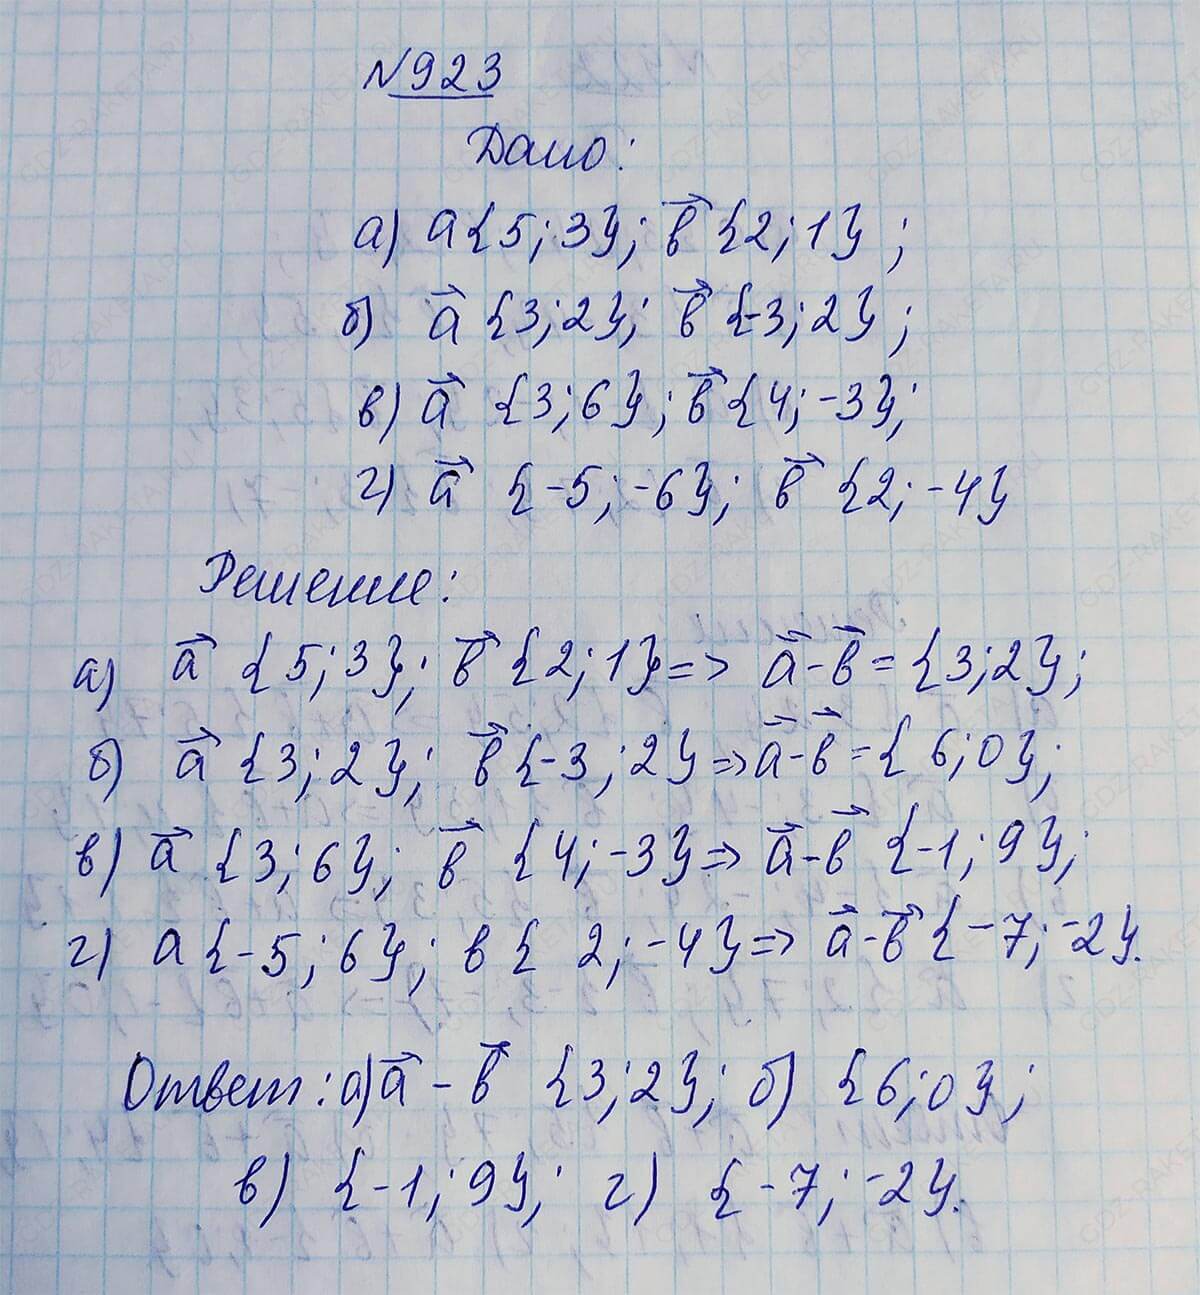 №923
Дано:
а) a{5; 3}; b⃗ {2; 1};
б) a⃗ {3; 2}; b⃗ {-3; 2};
в) a⃗ {3; 6}; b⃗ {4; -3};
г) a⃗ {-5; -6}; b⃗ {2; -4}
Решение:
а) a⃗ {5; 3}; b⃗ {2; 1} => a⃗-b⃗ = {3; 2};
б) a⃗ {3; 2}; b⃗ {-3; 2} => a⃗-b⃗ = {6; 0};
в) a⃗ {3; 6}; b⃗ {4; -3} => a⃗-b⃗ {-1; 9};
г) a {-5; 6}; b { 2; -4} => a⃗-b⃗ {-7; -2}.
Ответ: а) a⃗ - b⃗ {3; 2}; б) {6; 0};
в) {-1; 9}; г) {-7; -2}.